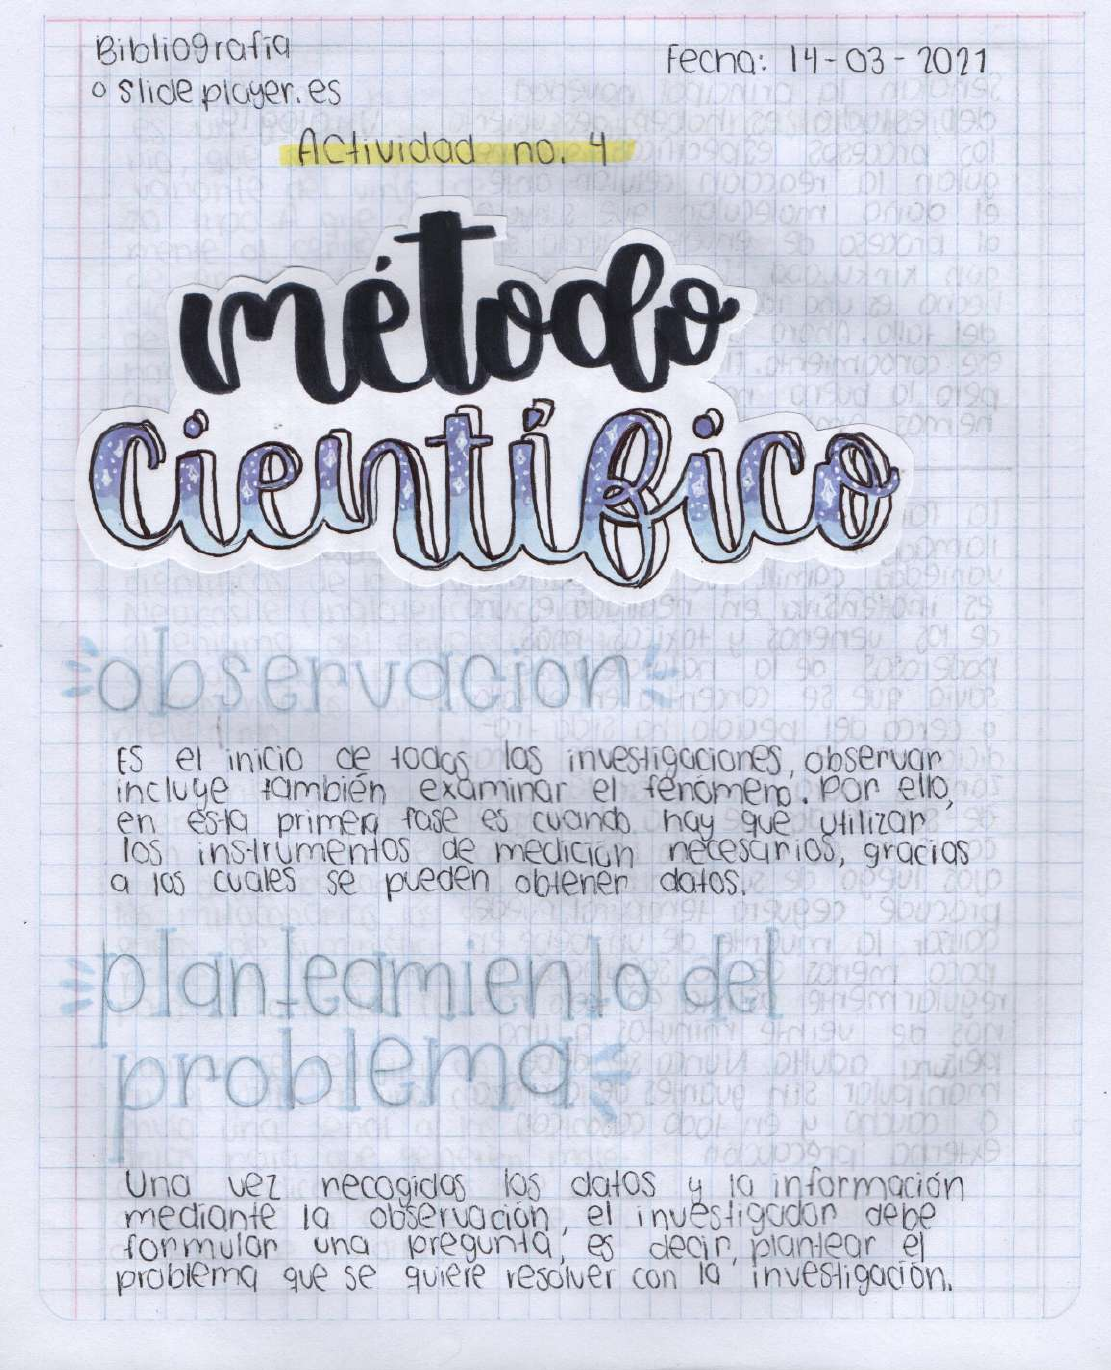 Bibliografía
° slide player.es
Fecha: 14-03-2021
Actividad no. 4
método
científico
observacion
Es el inicio de todas las investigaciones, observar
incluye también examinar el fenómeno. Por ello,
en esta primera fase es cuando hay que utilizar
los instrumentos de medición necesarios, gracias
a los cuales se pueden obtener datos.
planteamiento del
problema
Una vez recogidos los datos y la información
mediante la observación, el investigador debe
formular una pregunta, es decir, plantear el
problema que se quiere resolver con la investigación.